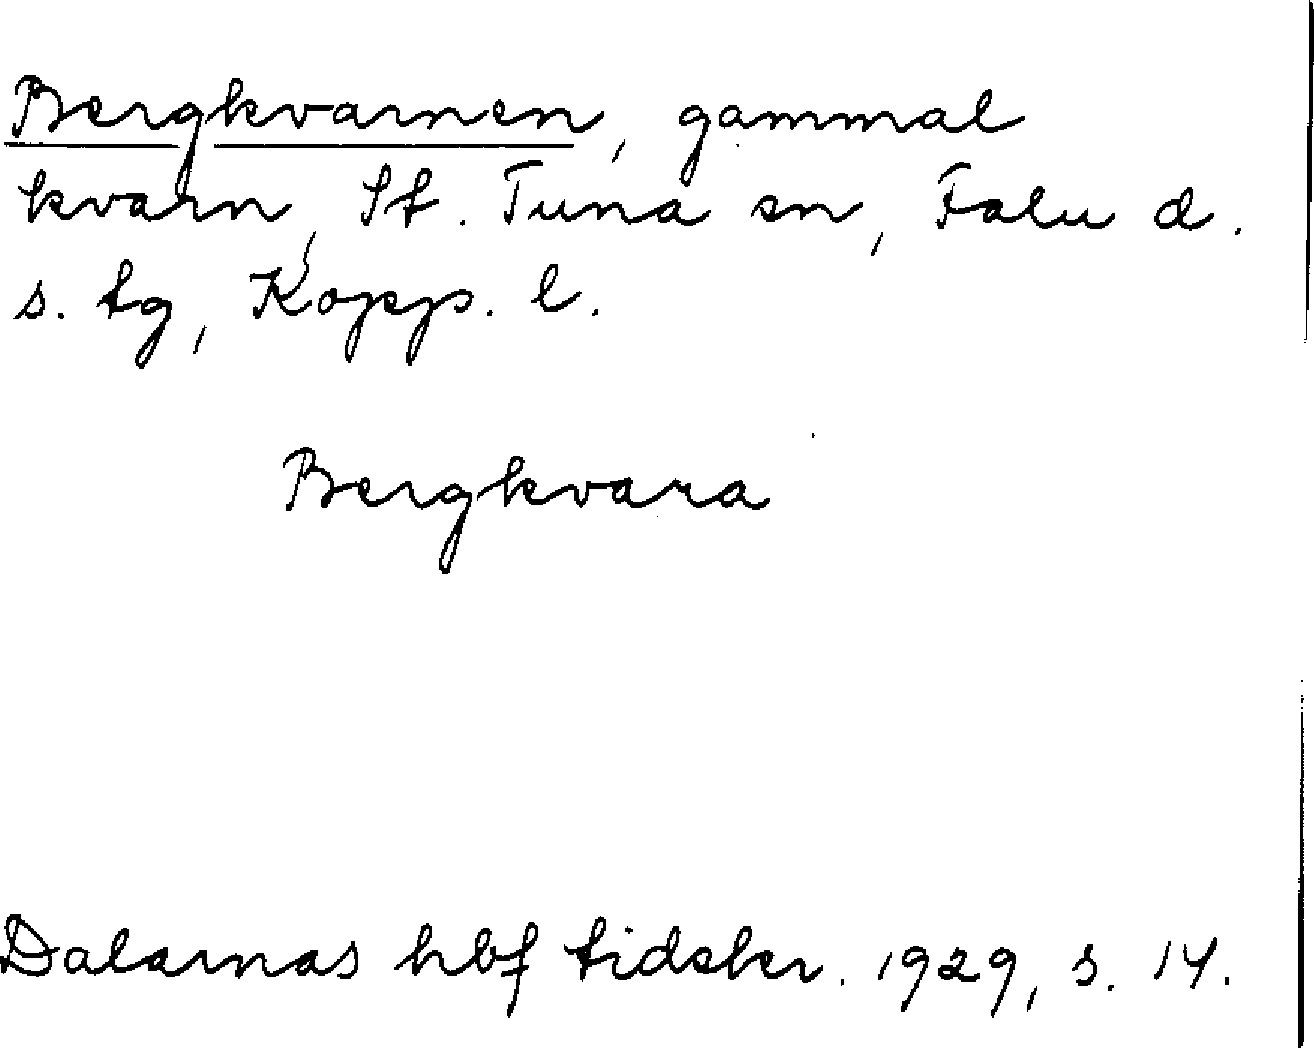 Bergkvarnen, gammal
kvarn, St. Tuna sn, Falu d.
s. tg, Kopp. l.
Bergkvara
Dalarnas hbf tidskr. 1929, s. 14.